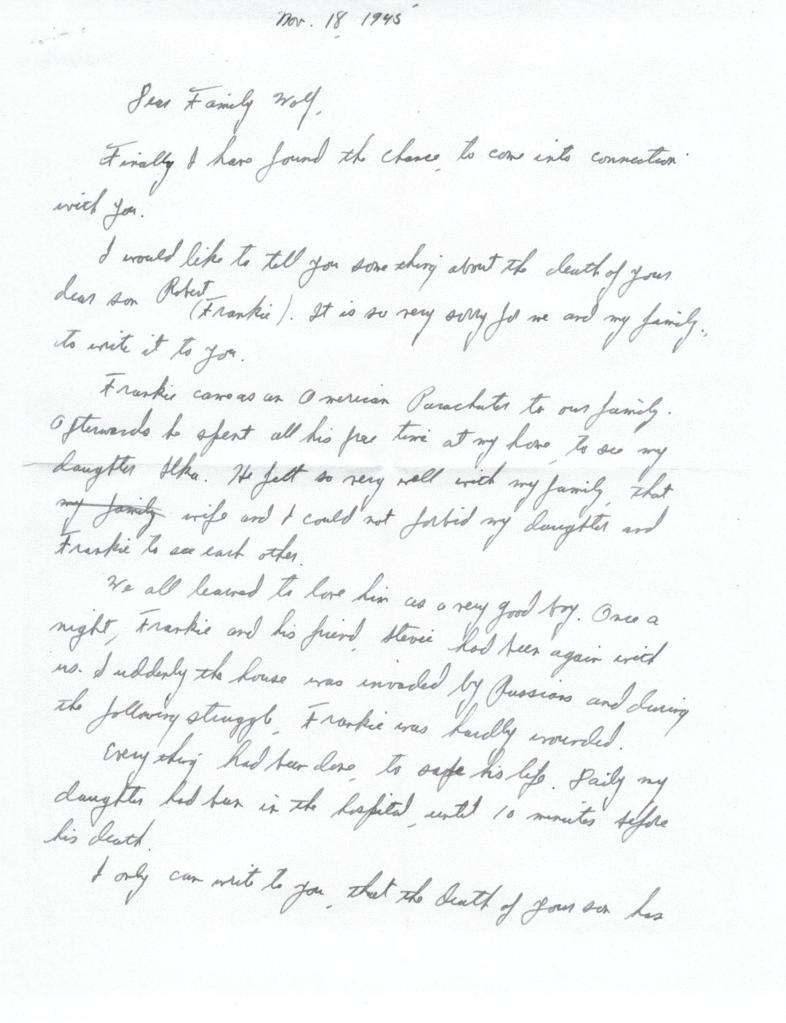 Nov. 18 1945
Dear Family Wolf,
Finally I have found the chance, to come into connection
with you.
I would like to tell you some thing about the death of your
dear son Robert (Frankie). It is so very sorry for me and my family,
to write it to you.
Frankie came as an American Parachuter to our family.
Afterwards he spent all his free time at my home, to see my
daughter Ilka. He felt so very well with my family, that
my family wife and I could not forbid my daughter and
Frankie to see each other.
We all learned to love him as a very good boy. Once a
night, Frankie and his friend, Stevie had been again with
us. Suddenly the house was invaded by Russians and during
the following struggle, Frankie was hardly wounded.
Every thing had been done, to safe his life. Daily my
daughter had been in the hospital, until 10 minutes before
his death.
I only can write to you, that the death of your son has